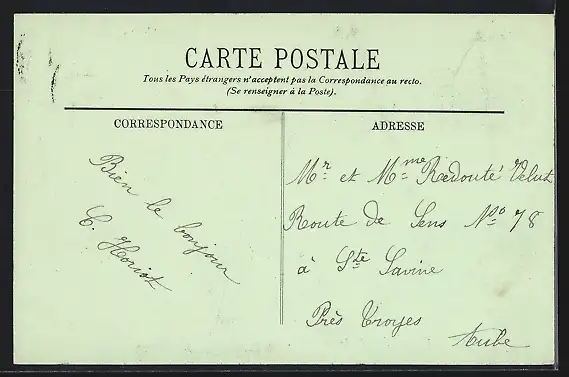 CARTE POSTALE
Tous les Pays étrangers n'acceptent pas la Correspondance au recto.
(Se renseigner à la Poste).
CORRESPONDANCE
Bien le bonjour
C. Horiot
ADRESSE
Mr et Mme Redouté Velut
Route de Sens No 78
à Ste Savine
Près Troyes
Aube